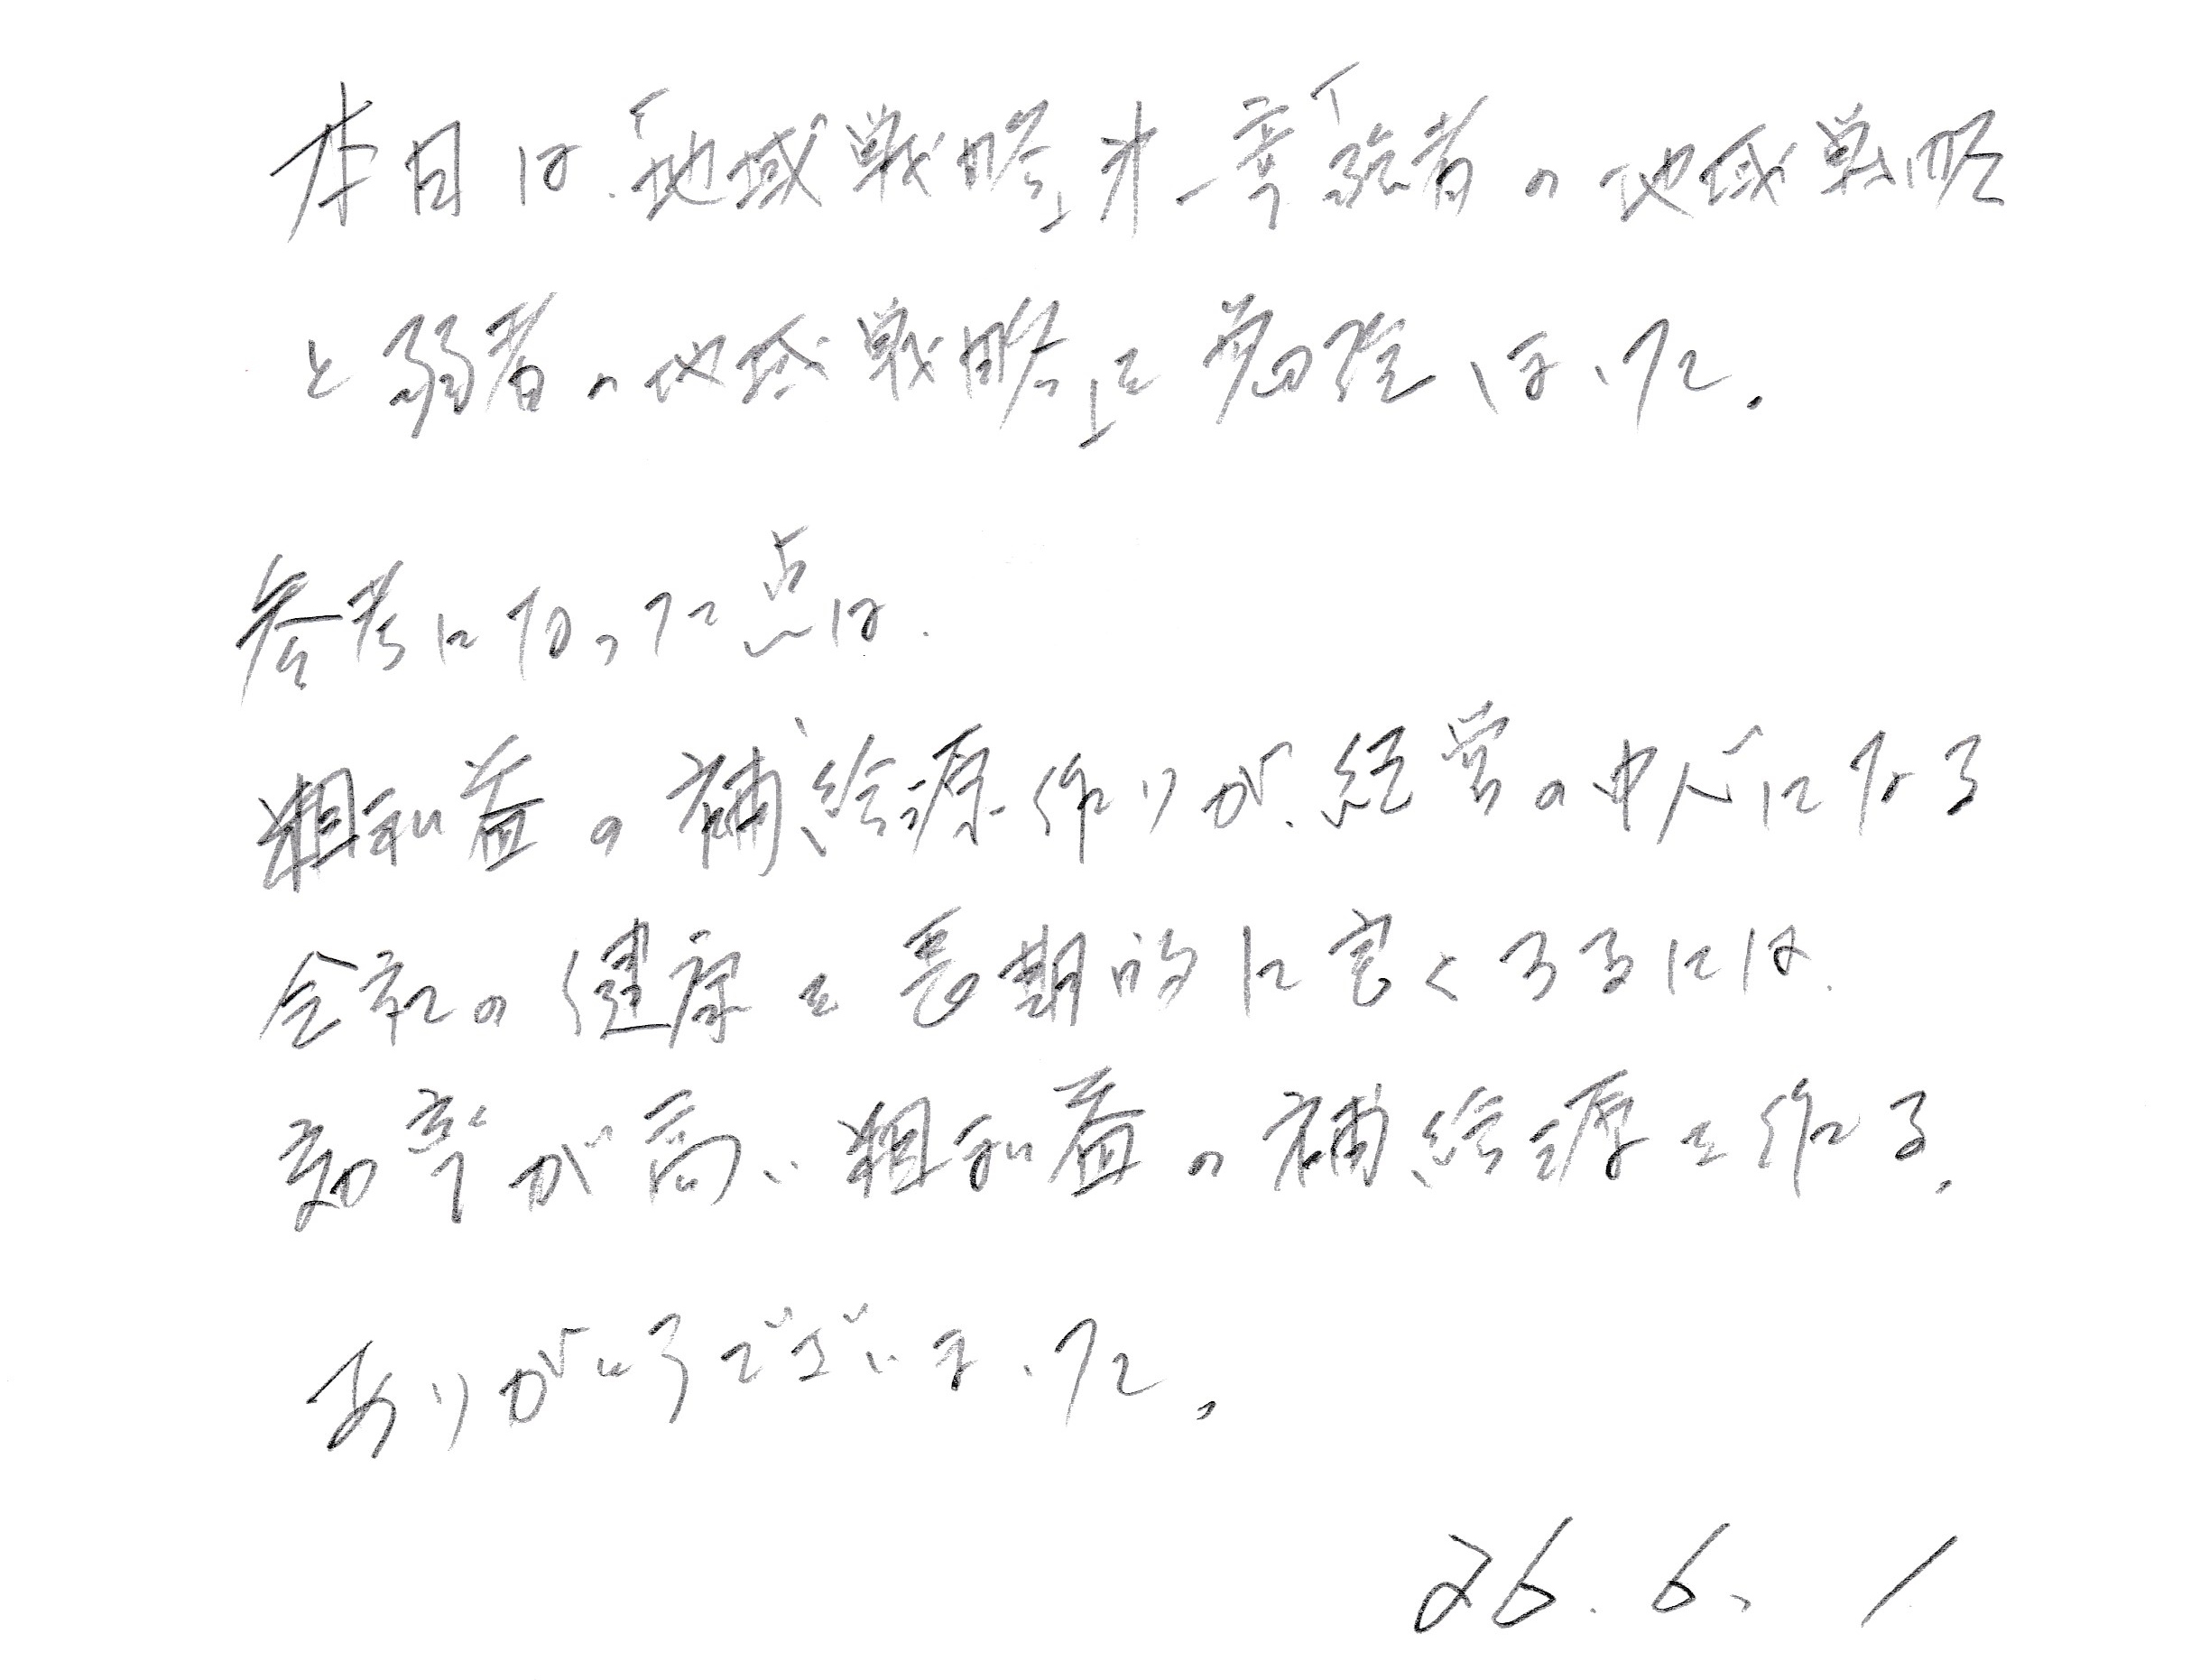 本日は、「地域戦略」才一章「強者の地域戦略
と弱者の地域戦略」を勉強しました。
参考になった点は、
粗利益の補給源作りが、経営の中心になる
会社の健康を長期的に良くするには、
効率が高い粗利益の補給源を作る。
ありがとうございました。
26.6.1